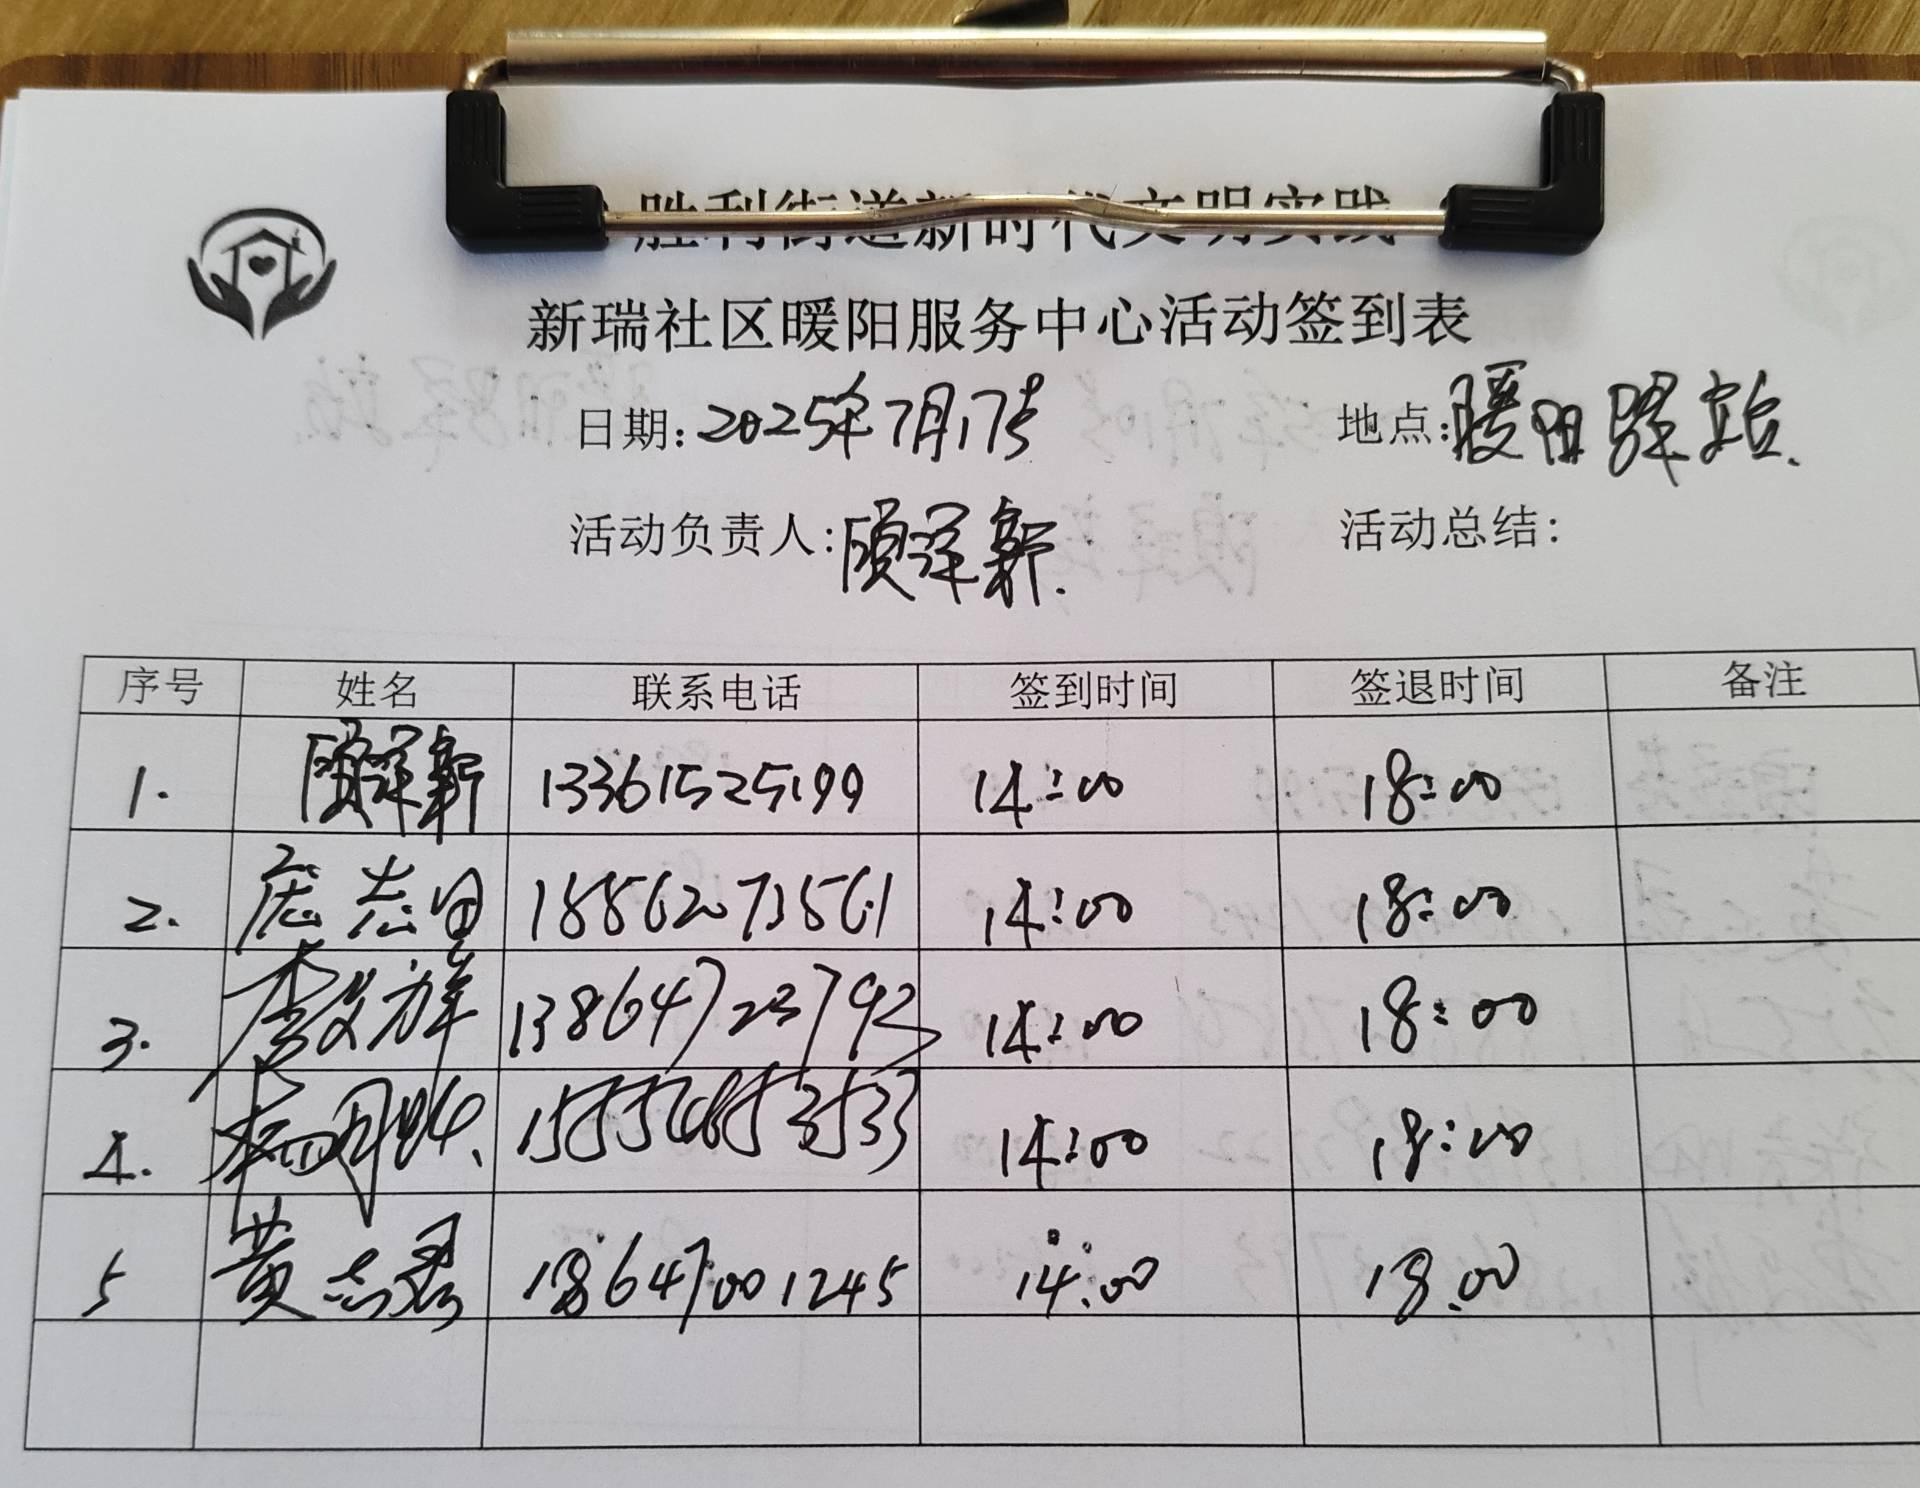 胜利街道新时代文明实践
新瑞社区暖阳服务中心活动签到表
日期:2025年7月17号 地点:暖阳驿站.
活动负责人:顾洋新. 活动总结:
序号 姓名 联系电话 签到时间 签退时间 备注
1. 顾洋新 13361525199 14:00 18:00
2. 18862073561 14:00 18:00
3. 李文祥 13864723792 14:00 18:00
4. 14:00 18:00
5 黄志勇 18647001245 14:00 18.00